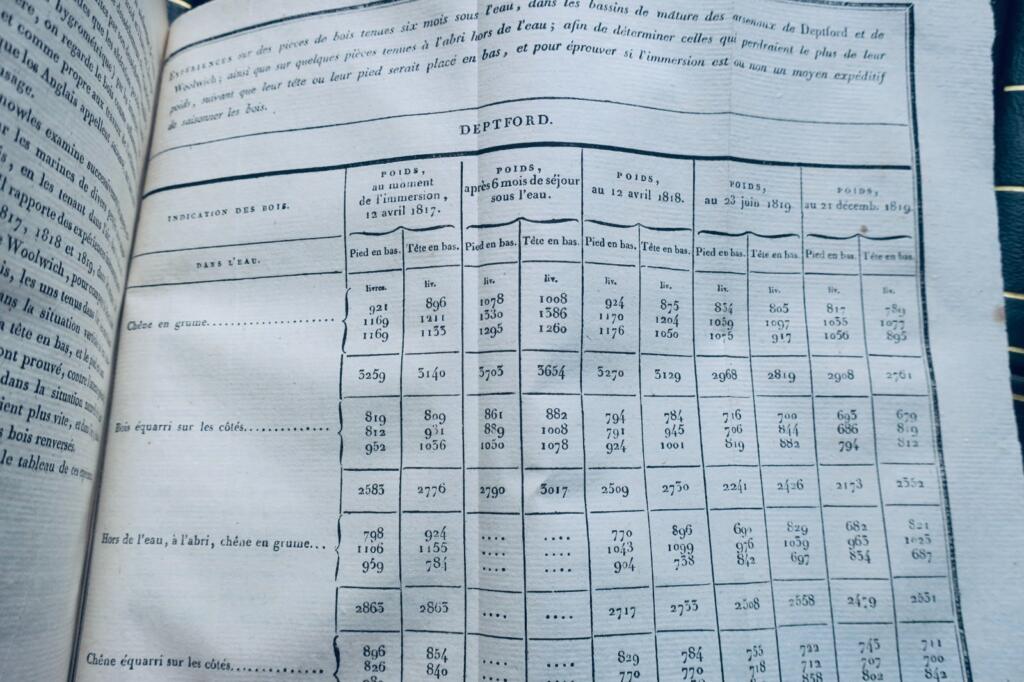 EXPÉRIENCES sur des pièces de bois tenues six mois sous l'eau, dans les bassins de mâture des arsenaux de Deptford et de
Woolwich; ainsi que sur quelques pièces tenues à l'abri hors de l'eau; afin de déterminer celles qui perdraient le plus de leur
poids, suivant que leur tête ou leur pied serait placé en bas, et pour éprouver si l'immersion est ou non un moyen expéditif
de saisonner les bois.
DEPTFORD.
INDICATION DES BOIS.
POIDS, au moment de l'immersion, 12 avril 1817.
POIDS, après 6 mois de séjour sous l'eau.
POIDS, au 12 avril 1818.
POIDS, au 23 juin 1819.
POIDS, au 21 décemb. 1819.
DANS L'EAU.
Pied en bas. Tête en bas. Pied en bas. Tête en bas. Pied en bas. Tête en bas. Pied en bas. Tête en bas. Pied en bas. Tête en bas.
livres. liv. liv. liv. liv. liv. liv. liv. liv. liv.
Chêne en grume
921 896 1078 1008 924 875 834 805 817 789
1169 1211 1330 1386 1170 1204 1059 1097 1035 1077
1169 1133 1295 1260 1176 1050 1075 917 1056 895
3259 3140 3703 3654 3270 3129 2968 2819 2908 2761
Bois équarri sur les côtés
819 809 861 882 794 784 716 700 693 679
812 931 889 1008 791 945 706 844 686 819
952 1036 1050 1078 924 1001 819 882 794
2583 2776 2790 3017 2509 2730 2241 2426 2173
Hors de l'eau, à l'abri, chêne en grume...
798 924 .... .... 770 896 829 682 821
1106 1155 .... .... 1043 1099 976 1039 963 1023
959 784 .... .... 904 738 842 697 834 687
2863 2863 .... .... 2717 2733 2508 2558 2479 2531
Chêne équarri sur les côtés
896 854 .... .... 829 784 755 722 743 711
826 840 .... .... 770 770 718 712 707 700
858 802 842
usage.
Knowles examine
les marines de
en les tenant dans
Il rapporte des
1817, 1818 et 1819,
Woolwich,
les uns tenus
dans la situation
tête en bas, et le
ont prouvé,
dans la situation
plus vite,
bois renversés.
le tableau de ces